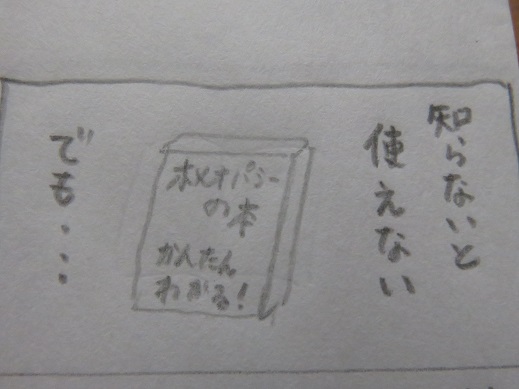 知らないと
使えない
ホメオパシー
の本
かんたん
わかる!
でも・・・